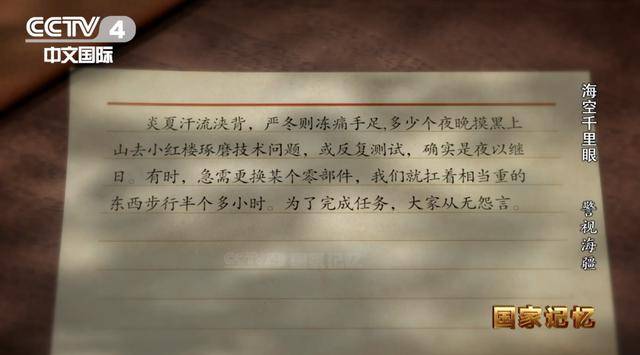 CCTV 4
中文国际
炎夏汗流浃背，严冬则冻痛手足，多少个夜晚摸黑上
山去小红楼琢磨技术问题，或反复测试，确实是夜以继
日。有时，急需更换某个零部件，我们就扛着相当重的
东西步行半个多小时。为了完成任务，大家从无怨言。
CCTV 4 国家记忆
海空千里眼 警视海疆
国家记忆